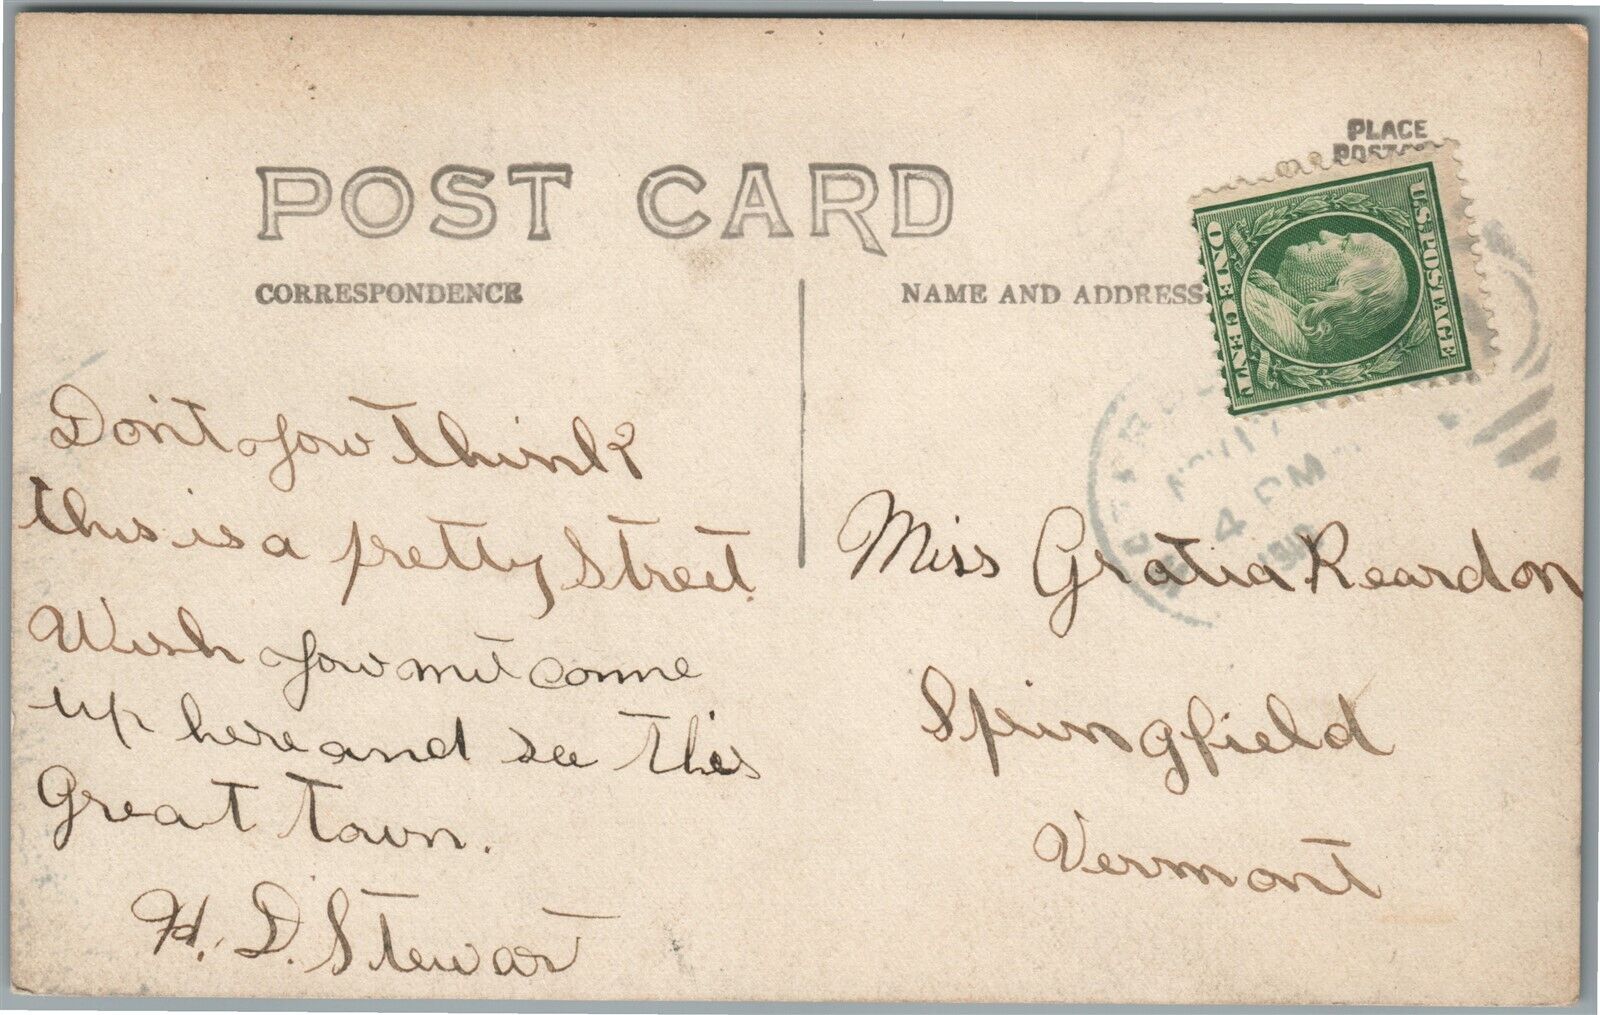 PLACE
POST CARD
CORRESPONDENCE
NAME AND ADDRESS
U.S. POSTAGE
ONE CENT
4 PM
Don't you think
this is a pretty Street.
Wish you
come
up here and see this
Great Town.
H. D. Stewart
Miss Gratia Reardon
Springfield
Vermont